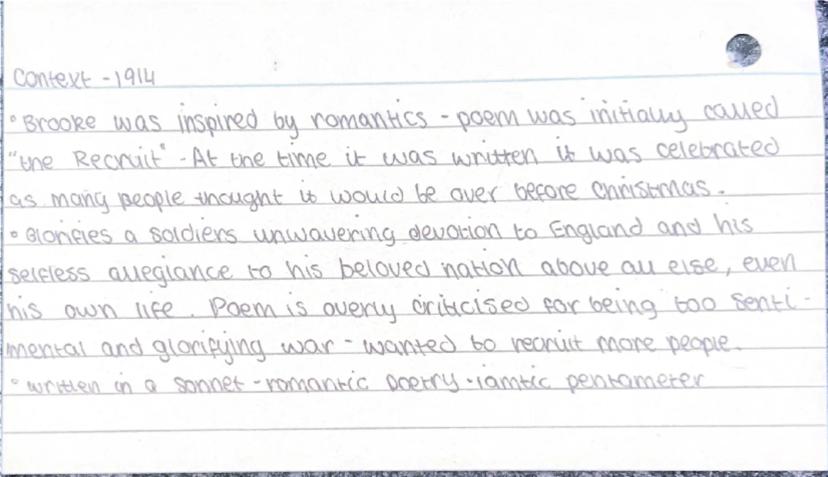 Context - 1914
° Brooke was inspired by romantics - poem was initially called
"the Recruit" - At the time it was written it was celebrated
as many people thought it would be over before christmas.
° Glorifies a soldiers unwavering devotion to England and his
selfless allegiance to his beloved nation above all else, even
his own life. Poem is overly criticised for being too senti-
mental and glorifying war - wanted to recruit more people.
° written in a sonnet - romantic poetry - iamtic pentameter